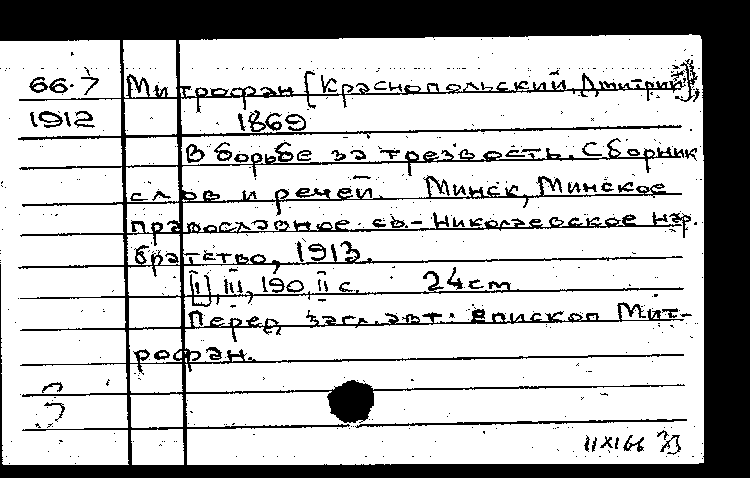 66.7 Митрофан [Краснопольский, Дмитрий],
1912 1869
В борьбе за трезвость. Сборник
слов и речей. Минск, Минское
православное св.-Николаевское нар.
братство, 1913.
[I], III, 190, II с. 24 cm
Перед загл. авт.: епископ Мит-
рофан.
11 XI 66